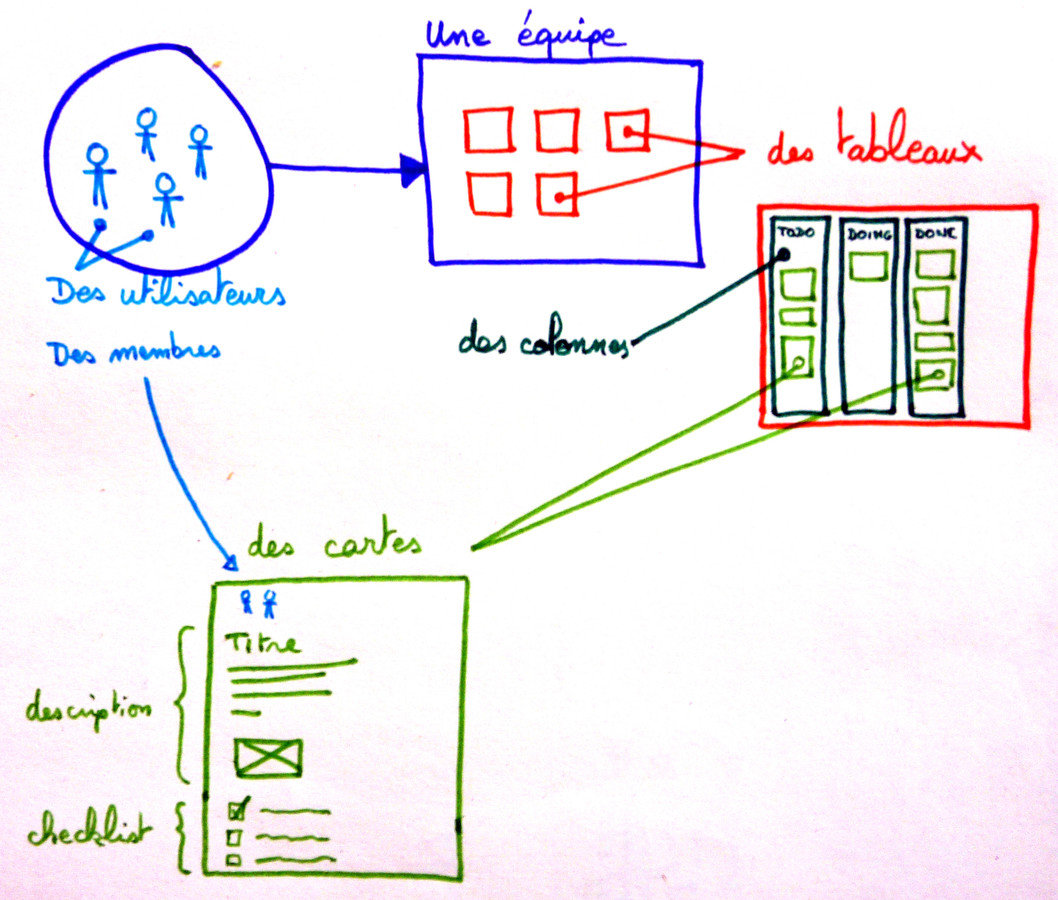 Une équipe
des tableaux
TODO
DOING
DONE
Des utilisateurs
Des membres
des colonnes
des cartes
Titre
description
checklist